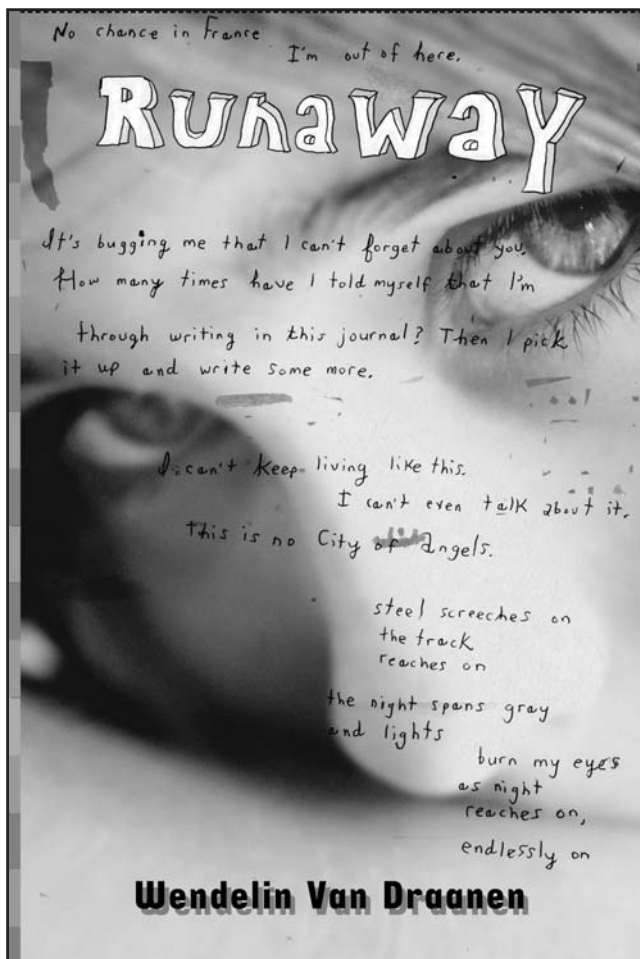 No chance in France
I'm out of here.
Runaway
It's bugging me that I can't forget about you.
How many times have I told myself that I'm
through writing in this journal? Then I pick
it up and write some more.
I can't keep living like this.
I can't even talk about it.
This is no City of angels.
steel screeches on
the track
reaches on
the night spans gray
and lights
burn my eyes
as night
reaches on,
endlessly on
Wendelin Van Draanen